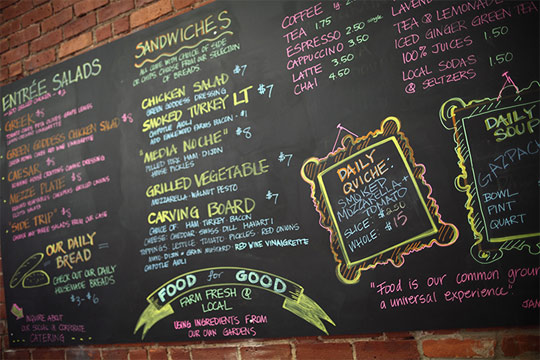 ENTRÉE SALADS
GREEK
GREEN GODDESS CHICKEN SALAD
CAESAR
MEZZE PLATE $5
"SIDE TRIP" $5
OUR DAILY
BREAD
CHECK OUT OUR DAILY
HOUSEMADE BREADS
$3-$6
INQUIRE ABOUT
OUR SOCIAL & CORPORATE
CATERING
SANDWICHES
ALL COME WITH CHOICE OF SIDE
OF CHIPS CHOOSE FROM OUR SELECTION
OF BREADS
CHICKEN SALAD $7
GREEN GODDESS DRESSING
SMOKED TURKEY LT $7
CHIPOTLE AIOLI
ADD EDGEWOOD FARMS BACON $1
"MEDIA NOCHE" $8
PULLED PORK HAM DIJON
HOUSE PICKLES
GRILLED VEGETABLE $7
MOZZARELLA WALNUT PESTO
CARVING BOARD $7
CHOICE OF HAM TURKEY BACON
CHEESE CHEDDAR SWISS DILL HAVARTI
TOPPINGS LETTUCE TOMATO PICKLES RED ONIONS
MAYO DIJON GRAIN MUSTARD RED WINE VINAIGRETTE
CHIPOTLE AIOLI
FOOD for GOOD
FARM FRESH &
LOCAL
USING INGREDIENTS FROM
OUR OWN GARDENS
COFFEE
TEA 1.75
ESPRESSO 2.50 SINGLE
CAPPUCCINO 3.50
LATTE 3.50
CHAI 4.50
TEA & LEMONADE
ICED GINGER GREEN TEA
100% JUICES 1.50
LOCAL SODAS
& SELTZERS
DAILY
QUICHE:
SMOKED
MOZZARELLA +
TOMATO
SLICE $2.50
WHOLE $15
DAILY
SOUP
GAZPACH
BOWL
PINT
QUART
"Food is our common groun
a universal experience."
JAM